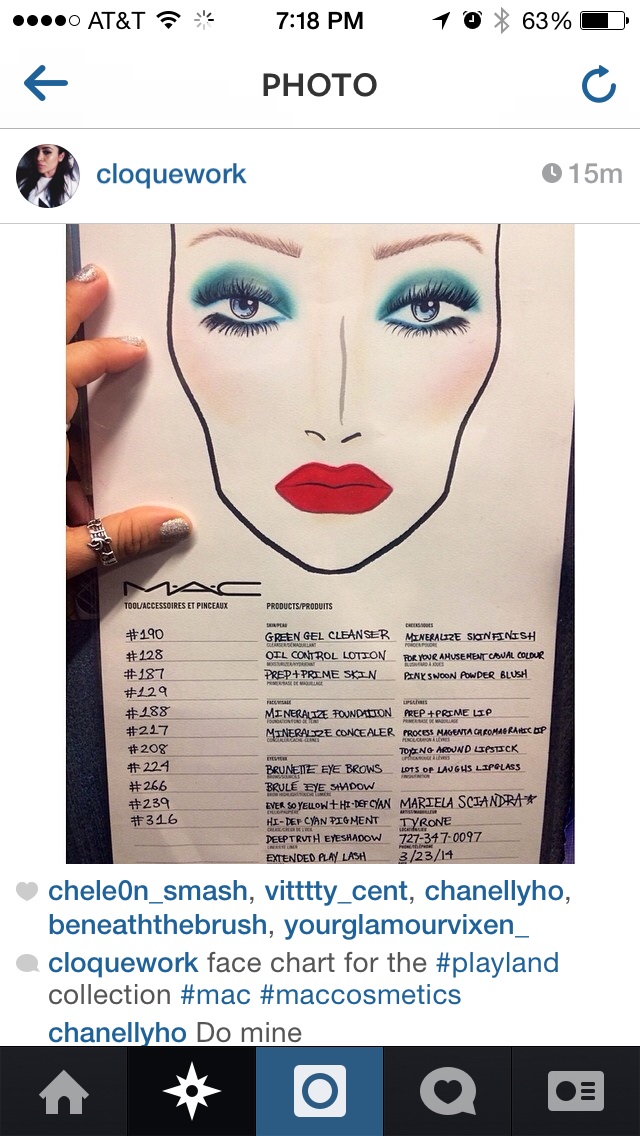 AT&T 7:18 PM 63%
PHOTO
cloquework 15m
M·A·C
TOOL/ACCESSOIRES ET PINCEAUX
#190
#128
#187
#129
#188
#217
#208
#224
#266
#239
#316
PRODUCTS/PRODUITS
SKIN/PEAU
GREEN GEL CLEANSER
CLEANSER/DÉMAQUILLANT
OIL CONTROL LOTION
MOISTURIZER/HYDRATANT
PREP+PRIME SKIN
PRIMER/BASE DE MAQUILLAGE
FACE/VISAGE
MINERALIZE FOUNDATION
FOUNDATION/FOND DE TEINT
MINERALIZE CONCEALER
CONCEALER/CACHE-CERNES
EYES/YEUX
BRUNETTE EYE BROWS
BROWS/SOURCILS
BRULÉ EYE SHADOW
EVER SO YELLOW + HI-DEF CYAN
HI-DEF CYAN PIGMENT
DEEPTRUTH EYESHADOW
EXTENDED PLAY LASH
CHEEKS/JOUES
MINERALIZE SKINFINISH
POWDER/POUDRE
FOR YOUR AMUSEMENT CASUAL COLOUR
BLUSH/FARD À JOUES
PINKSWOON POWDER BLUSH
LIPS/LÈVRES
PREP+PRIME LIP
PRIMER/BASE DE MAQUILLAGE
PROCESS MAGENTA CHROMAGRAPHIC LIP
PENCIL/CRAYON À LÈVRES
TOYING AROUND LIPSTICK
LIPSTICK/ROUGE À LÈVRES
LOTS OF LAUGHS LIPGLASS
FINISH/FINITION
MARIELA SCIANDRA
ARTIST/MAQUILLEUR
TYRONE
LOCATION/LIEU
727-347-0097
PHONE/TÉLÉPHONE
3/23/14
chele0n_smash, vitttty_cent, chanellyho,
beneaththebrush, yourglamourvixen_
cloquework face chart for the #playland
collection #mac #maccosmetics
chanellyho Do mine